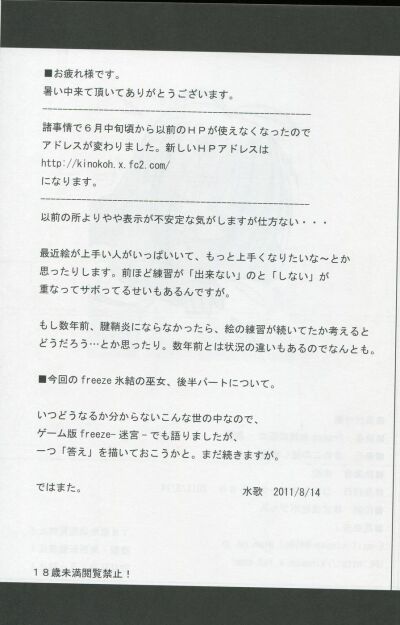 ■お疲れ様です。
暑い中来て頂いてありがとうございます。
諸事情で６月中旬頃から以前のＨＰが使えなくなったので
アドレスが変わりました。新しいＨＰアドレスは
http://kinokoh.x.fc2.com/
になります。
以前の所よりやや表示が不安定な気がしますが仕方ない・・・
最近絵が上手い人がいっぱいいて、もっと上手くなりたいな～とか
思ったりします。前ほど練習が「出来ない」のと「しない」が
重なってサボってるせいもあるんですが。
もし数年前、腱鞘炎にならなかったら、絵の練習が続いてたか考えると
どうだろう…とか思ったり。数年前とは状況の違いもあるのでなんとも。
■今回のfreeze氷結の巫女、後半パートについて。
いつどうなるか分からないこんな世の中なので、
ゲーム版freeze-迷宮-でも語りましたが、
一つ「答え」を描いておこうかと。まだ続きますが。
ではまた。 水歌 2011/8/14
１８歳未満閲覧禁止！